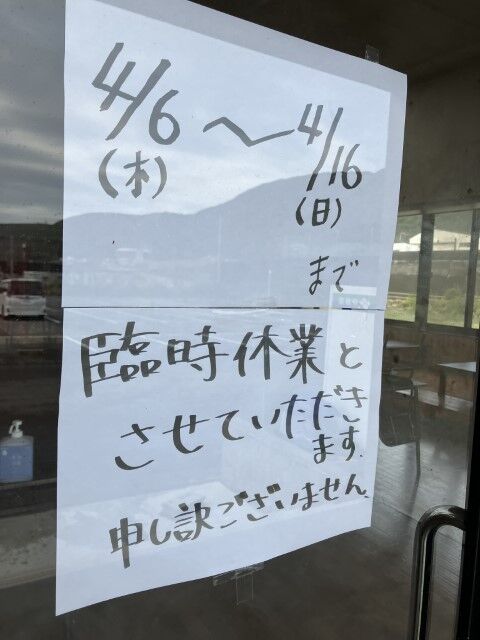 4/6〜4/16
(木) (日)
まで
臨時休業と
させていただき
ます.
申し訳ございません.